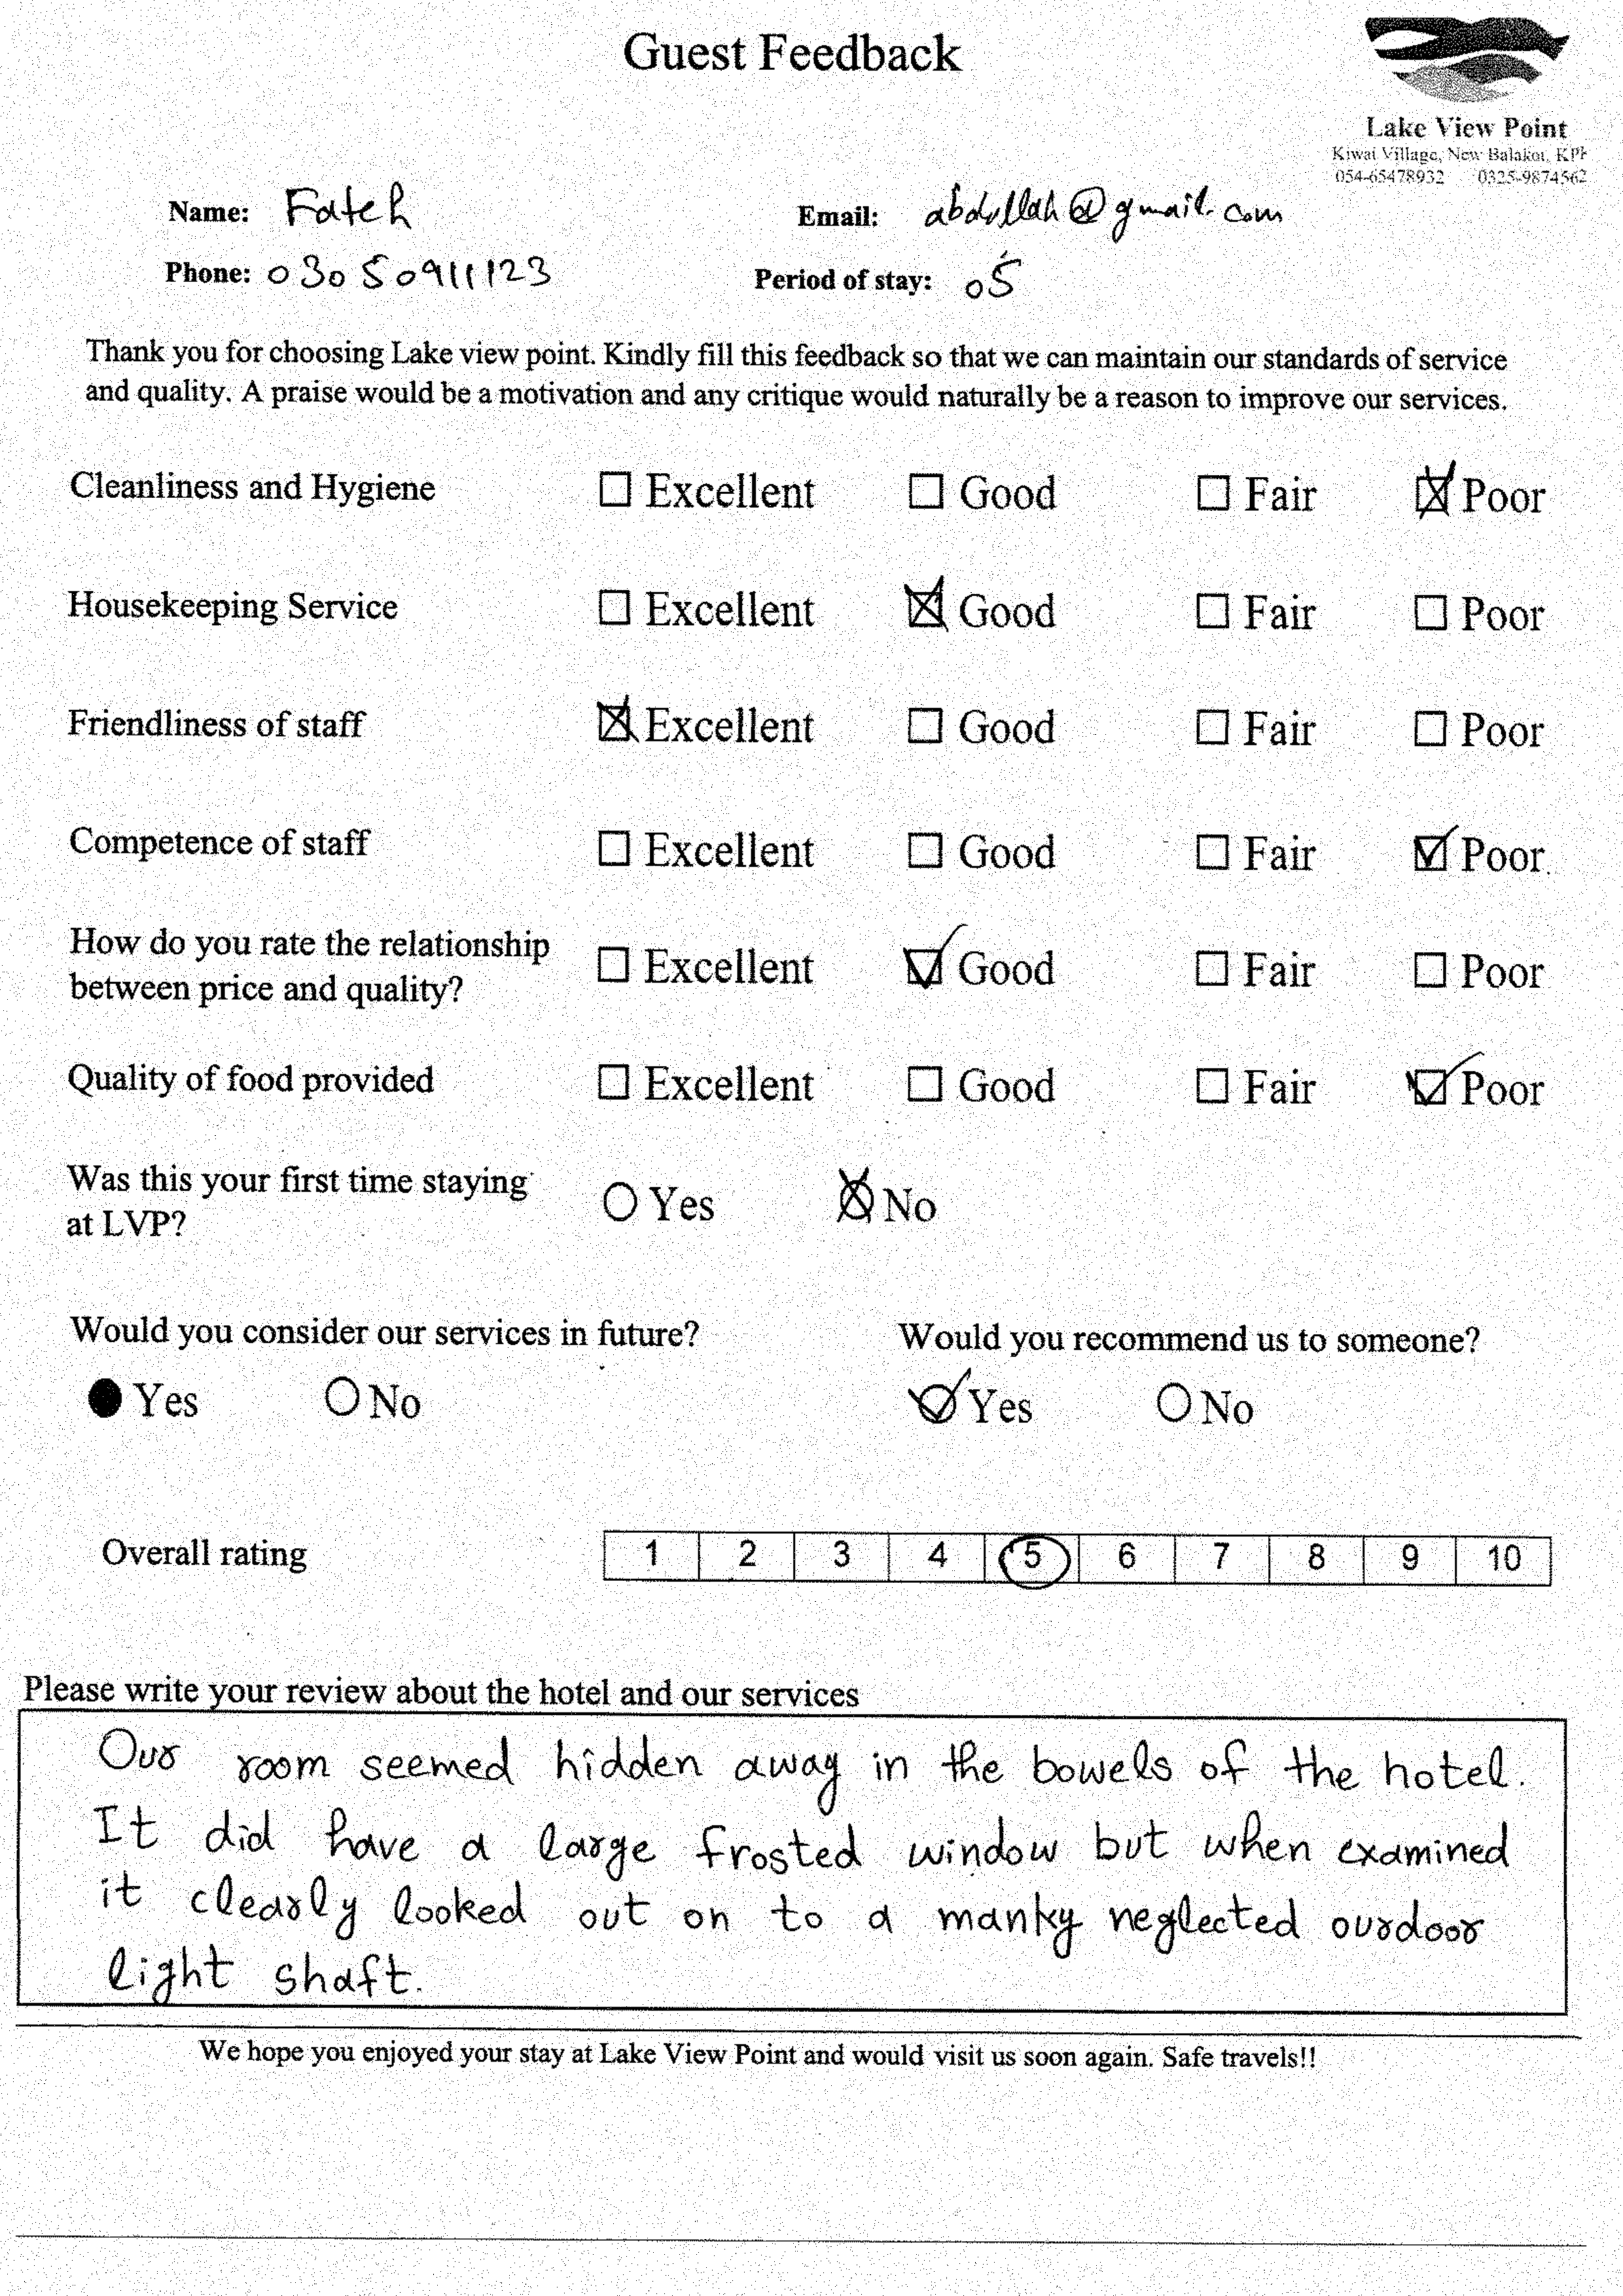 Guest Feedback
Lake View Point
Kiwai Village, New Balakot, KPK
054-65478932 0325-9874562
Name: Fateh Email: abdullah@gmail.com
Phone: 03050911123 Period of stay: 05
Thank you for choosing Lake view point. Kindly fill this feedback so that we can maintain our standards of service
and quality. A praise would be a motivation and any critique would naturally be a reason to improve our services.
Cleanliness and Hygiene Excellent Good Fair Poor
Housekeeping Service Excellent Good Fair Poor
Friendliness of staff Excellent Good Fair Poor
Competence of staff Excellent Good Fair Poor
How do you rate the relationship
between price and quality? Excellent Good Fair Poor
Quality of food provided Excellent Good Fair Poor
Was this your first time staying
at LVP? Yes No
Would you consider our services in future? Would you recommend us to someone?
Yes No Yes No
Overall rating 1 2 3 4 5 6 7 8 9 10
Please write your review about the hotel and our services
Our room seemed hidden away in the bowels of the hotel.
It did have a large frosted window but when examined
it clearly looked out on to a manky neglected ourdoor
light shaft.
We hope you enjoyed your stay at Lake View Point and would visit us soon again. Safe travels!!